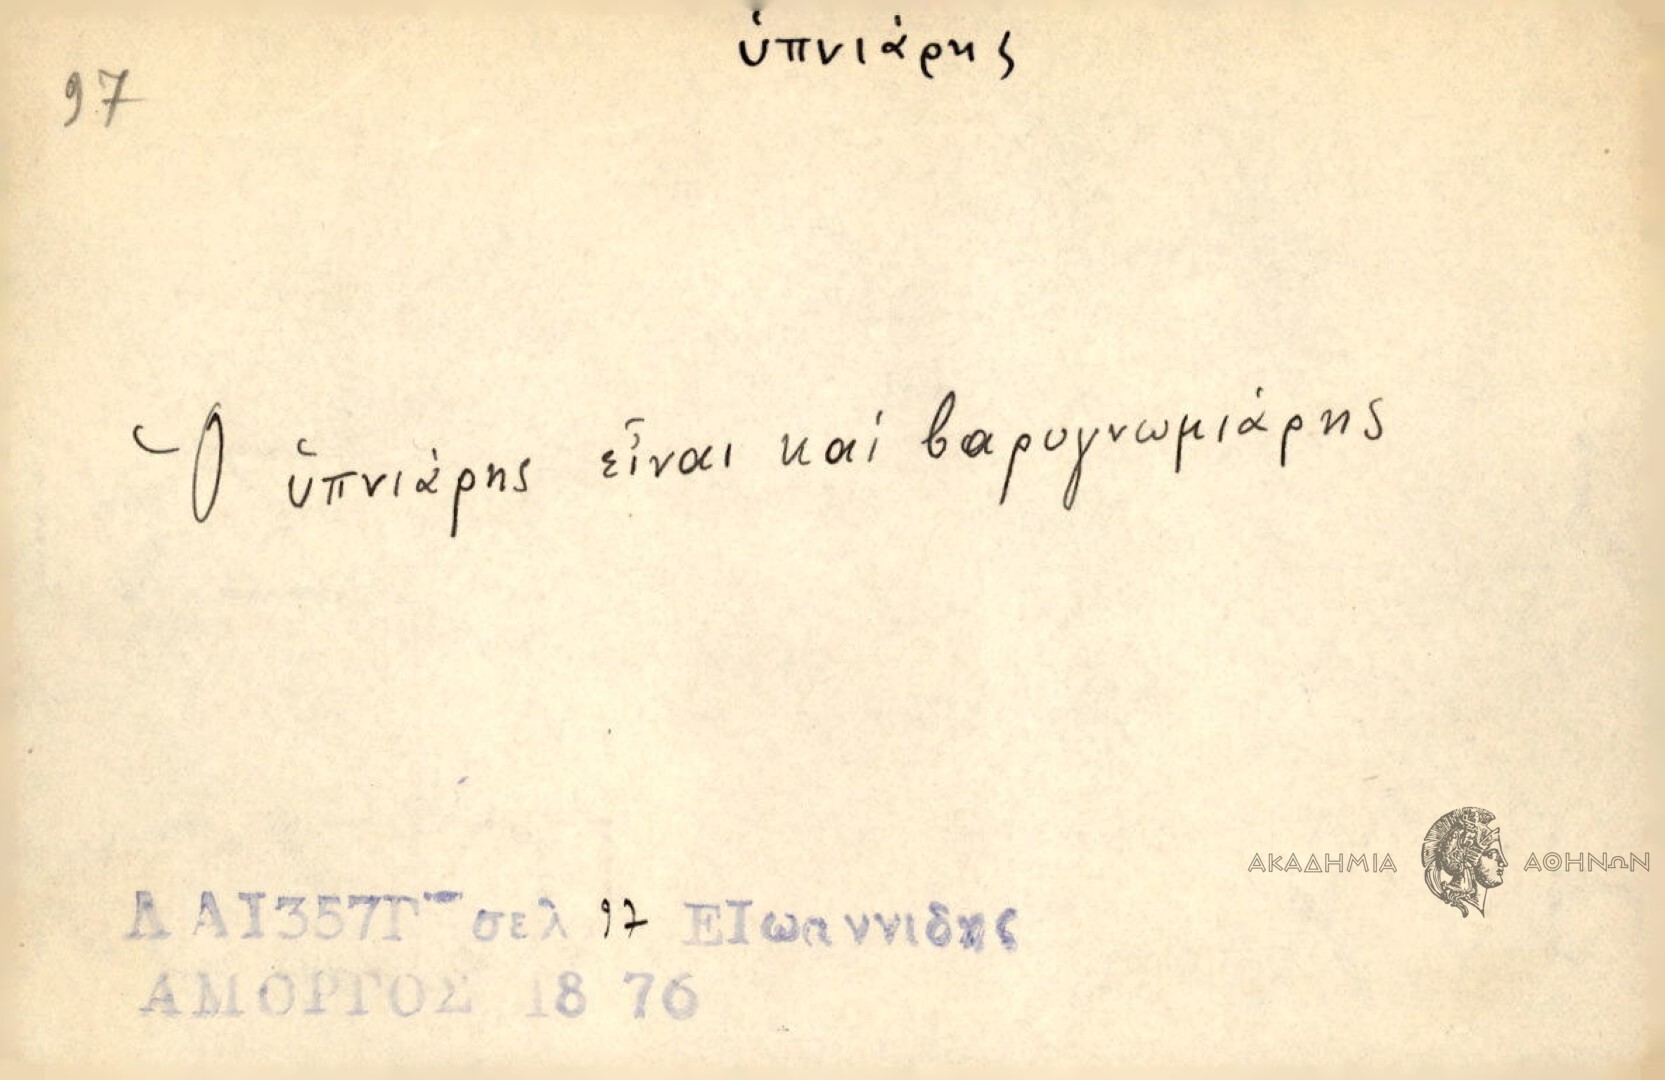 ὑπνιάρης
97
Ὁ ὑπνιάρης εἶναι καί βαρυγνωμιάρης
ΑΚΑΔΗΜΙΑ ΑΘΗΝΩΝ
Λ Α Ι 357Γ σελ 97 Ε Ιωαννιδης
ΑΜΟΡΓΟΣ 1876